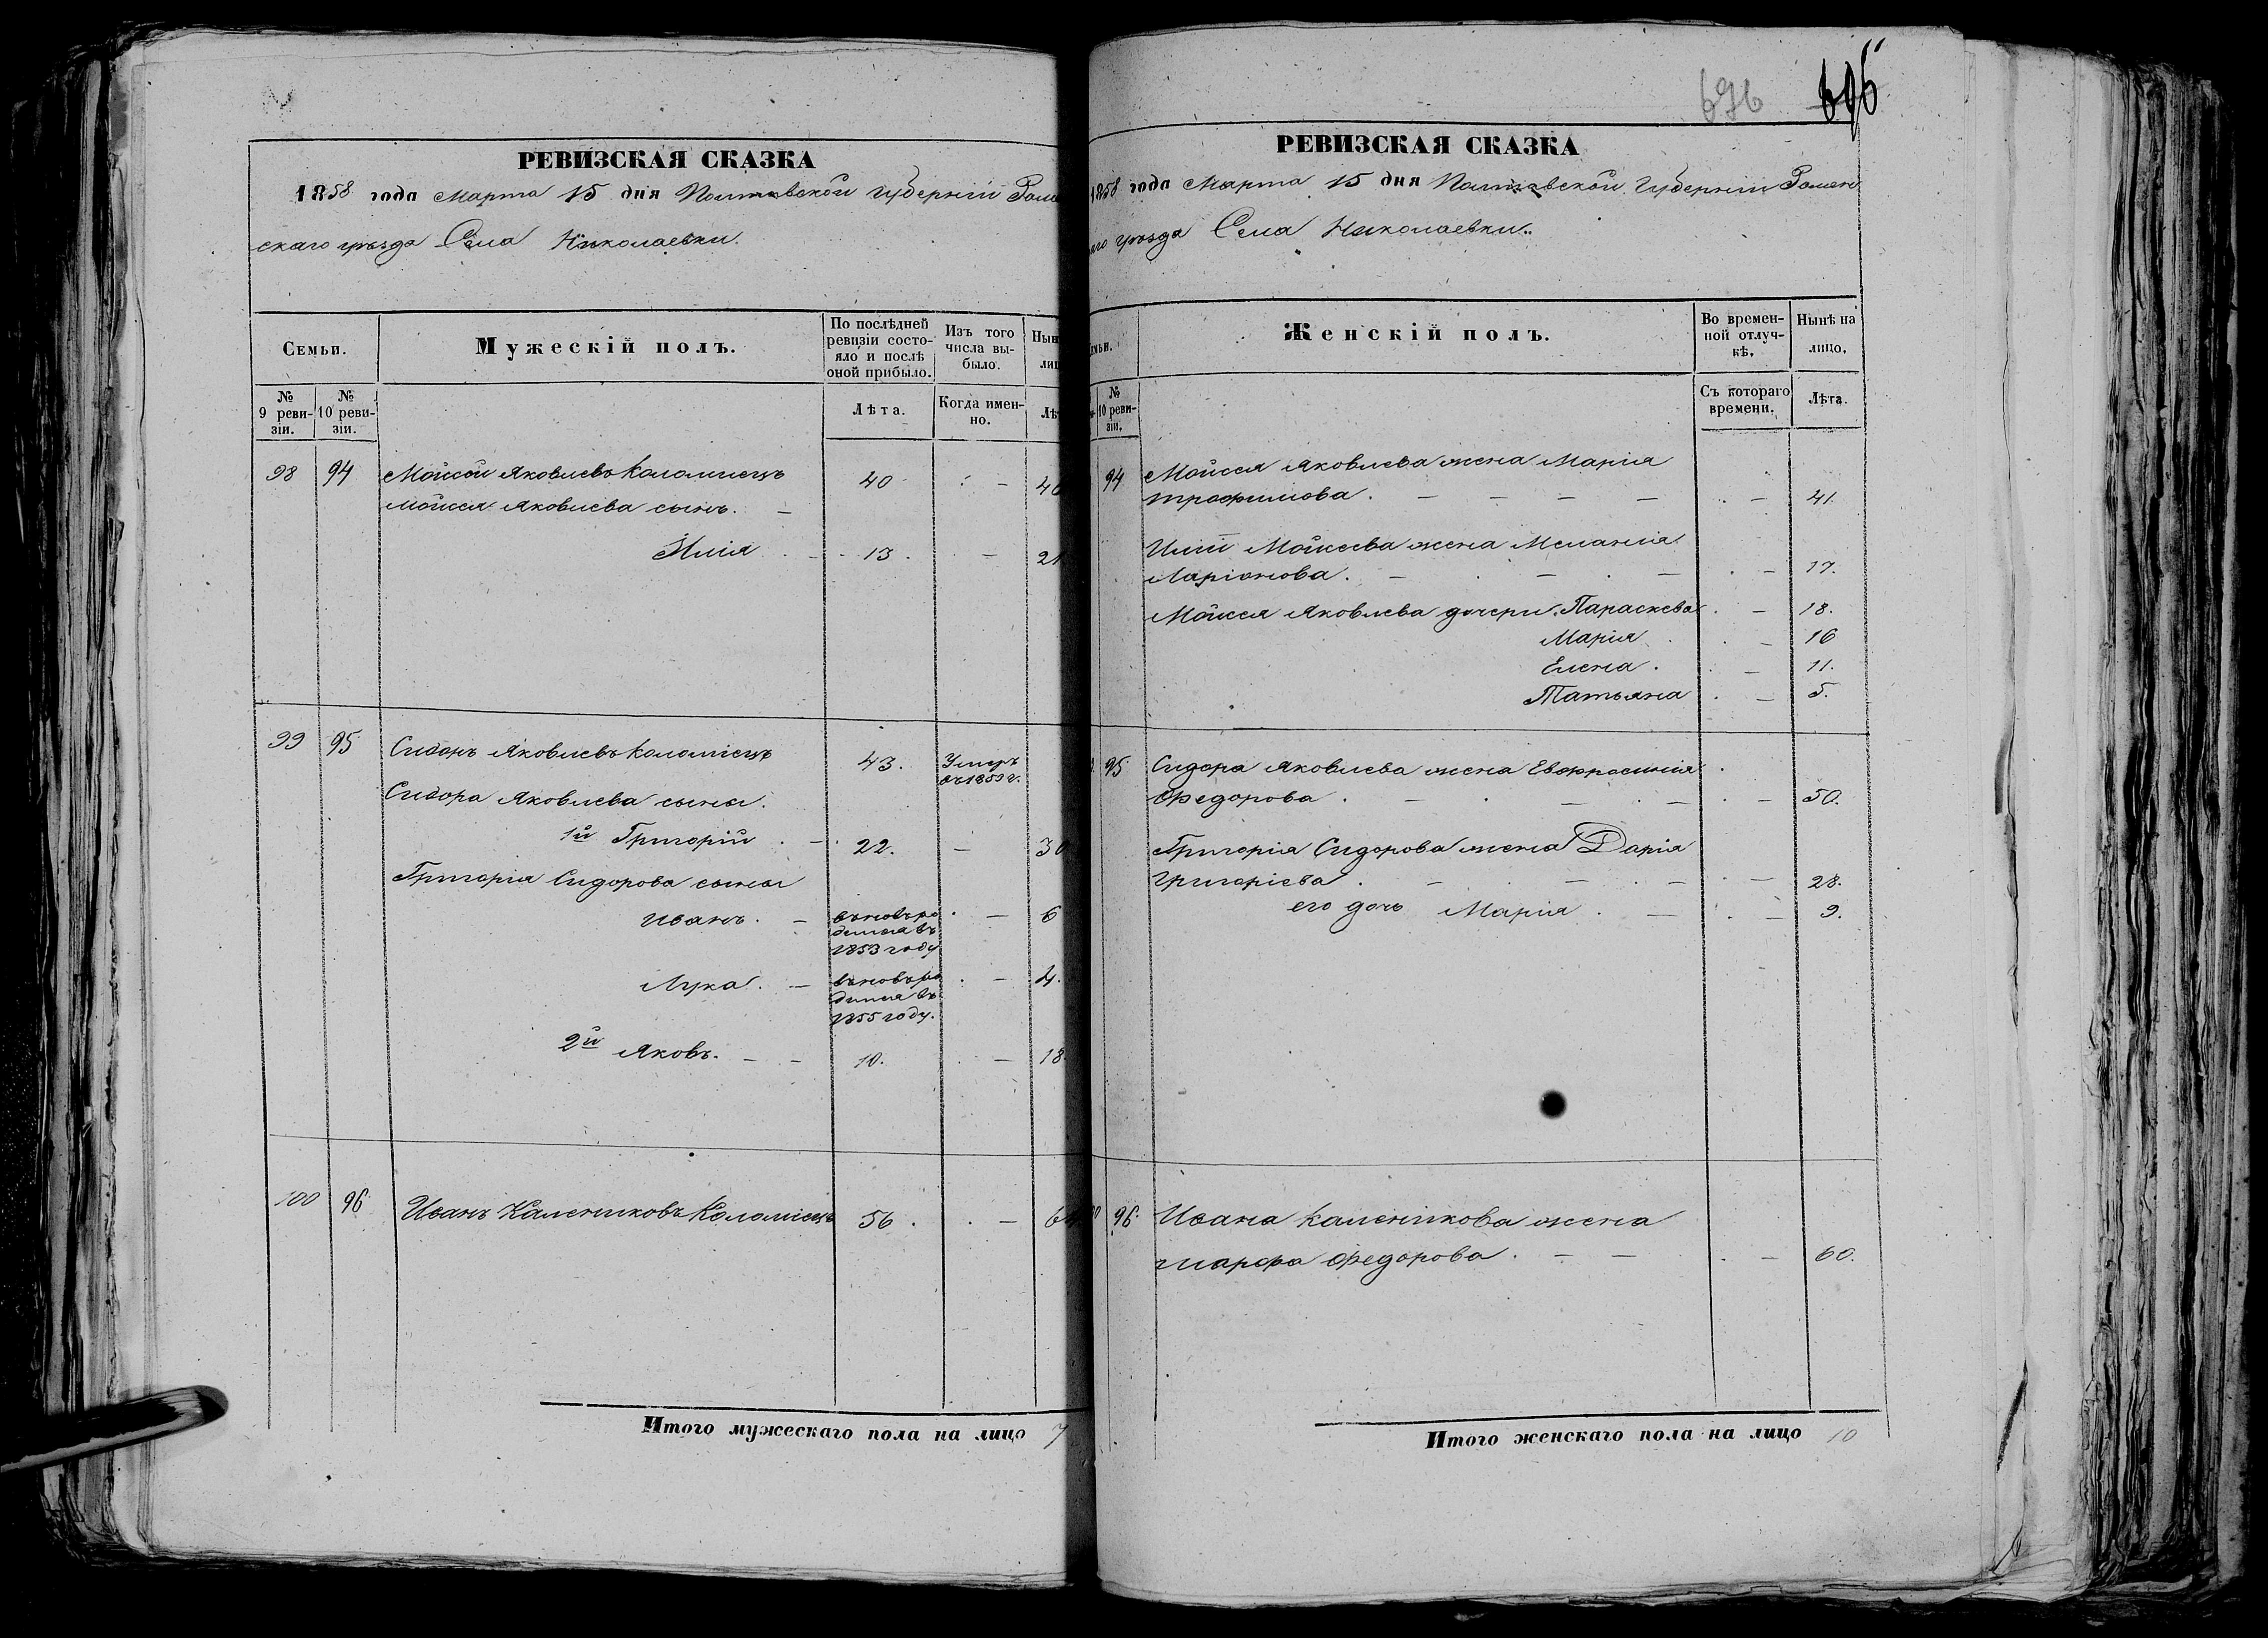 РЕВИЗСКАЯ СКАЗКА
1858 года Марта 15 дня Полтавской Губерніи Роме
скаго уѣзда Села Николаевки.
Семьи.
Мужескій полъ.
По послѣдней ревизіи состояло и послѣ оной прибыло.
Изъ того числа выбыло.
№ 9 ревизіи.
№ 10 ревизіи.
Лѣта.
Когда именно.
98 94 Мойсей Яковлевъ Коломіецъ 40 - 4
Мойсея Яковлева сынъ. -
Илія - 13. - 21
99 95 Сидоръ Яковлевъ Коломіецъ 43. Умеръ
въ 1859 г.
Сидора Яковлева сыны.
1й Григорій - 22. - 30
Григорія Сидорова сыны
Иванъ. - вновь ро - 6
дился въ
1853 году
Лука. - вновь ро - 4.
дился въ
1855 году.
2й Яковъ. - - 10. - 18.
100 96 Иванъ Калениковъ Коломіецъ 56. - 6
Итого мужескаго пола на лицо 7
696 696
РЕВИЗСКАЯ СКАЗКА
1858 года Марта 15 дня Полтавской Губерніи Ромен
аго уѣзда Села Николаевки.
Женскій полъ.
Во временной отлучкѣ.
Нынѣ на лицо.
№ 10 ревизіи.
Съ котораго времени.
Лѣта.
94 Мойсея Яковлева жена Марія
Трофимова. - - - - - 41.
Иліи Мойсеева жена Меланія
Ларіонова. - - - - 17.
Мойсея Яковлева дочери. Параскева - 18.
Марія - 16
Елена. - 11.
Татьяна - 5.
95 Сидора Яковлева жена Евфросинія
Федорова. - - - - 50.
Григорія Сидорова жена Дарія
Григоріева. - - - - 28.
его дочь Марія. - - 9.
96. Ивана Каленикова жена
Марфа Федорова. - - - 60.
Итого женскаго пола на лицо 10